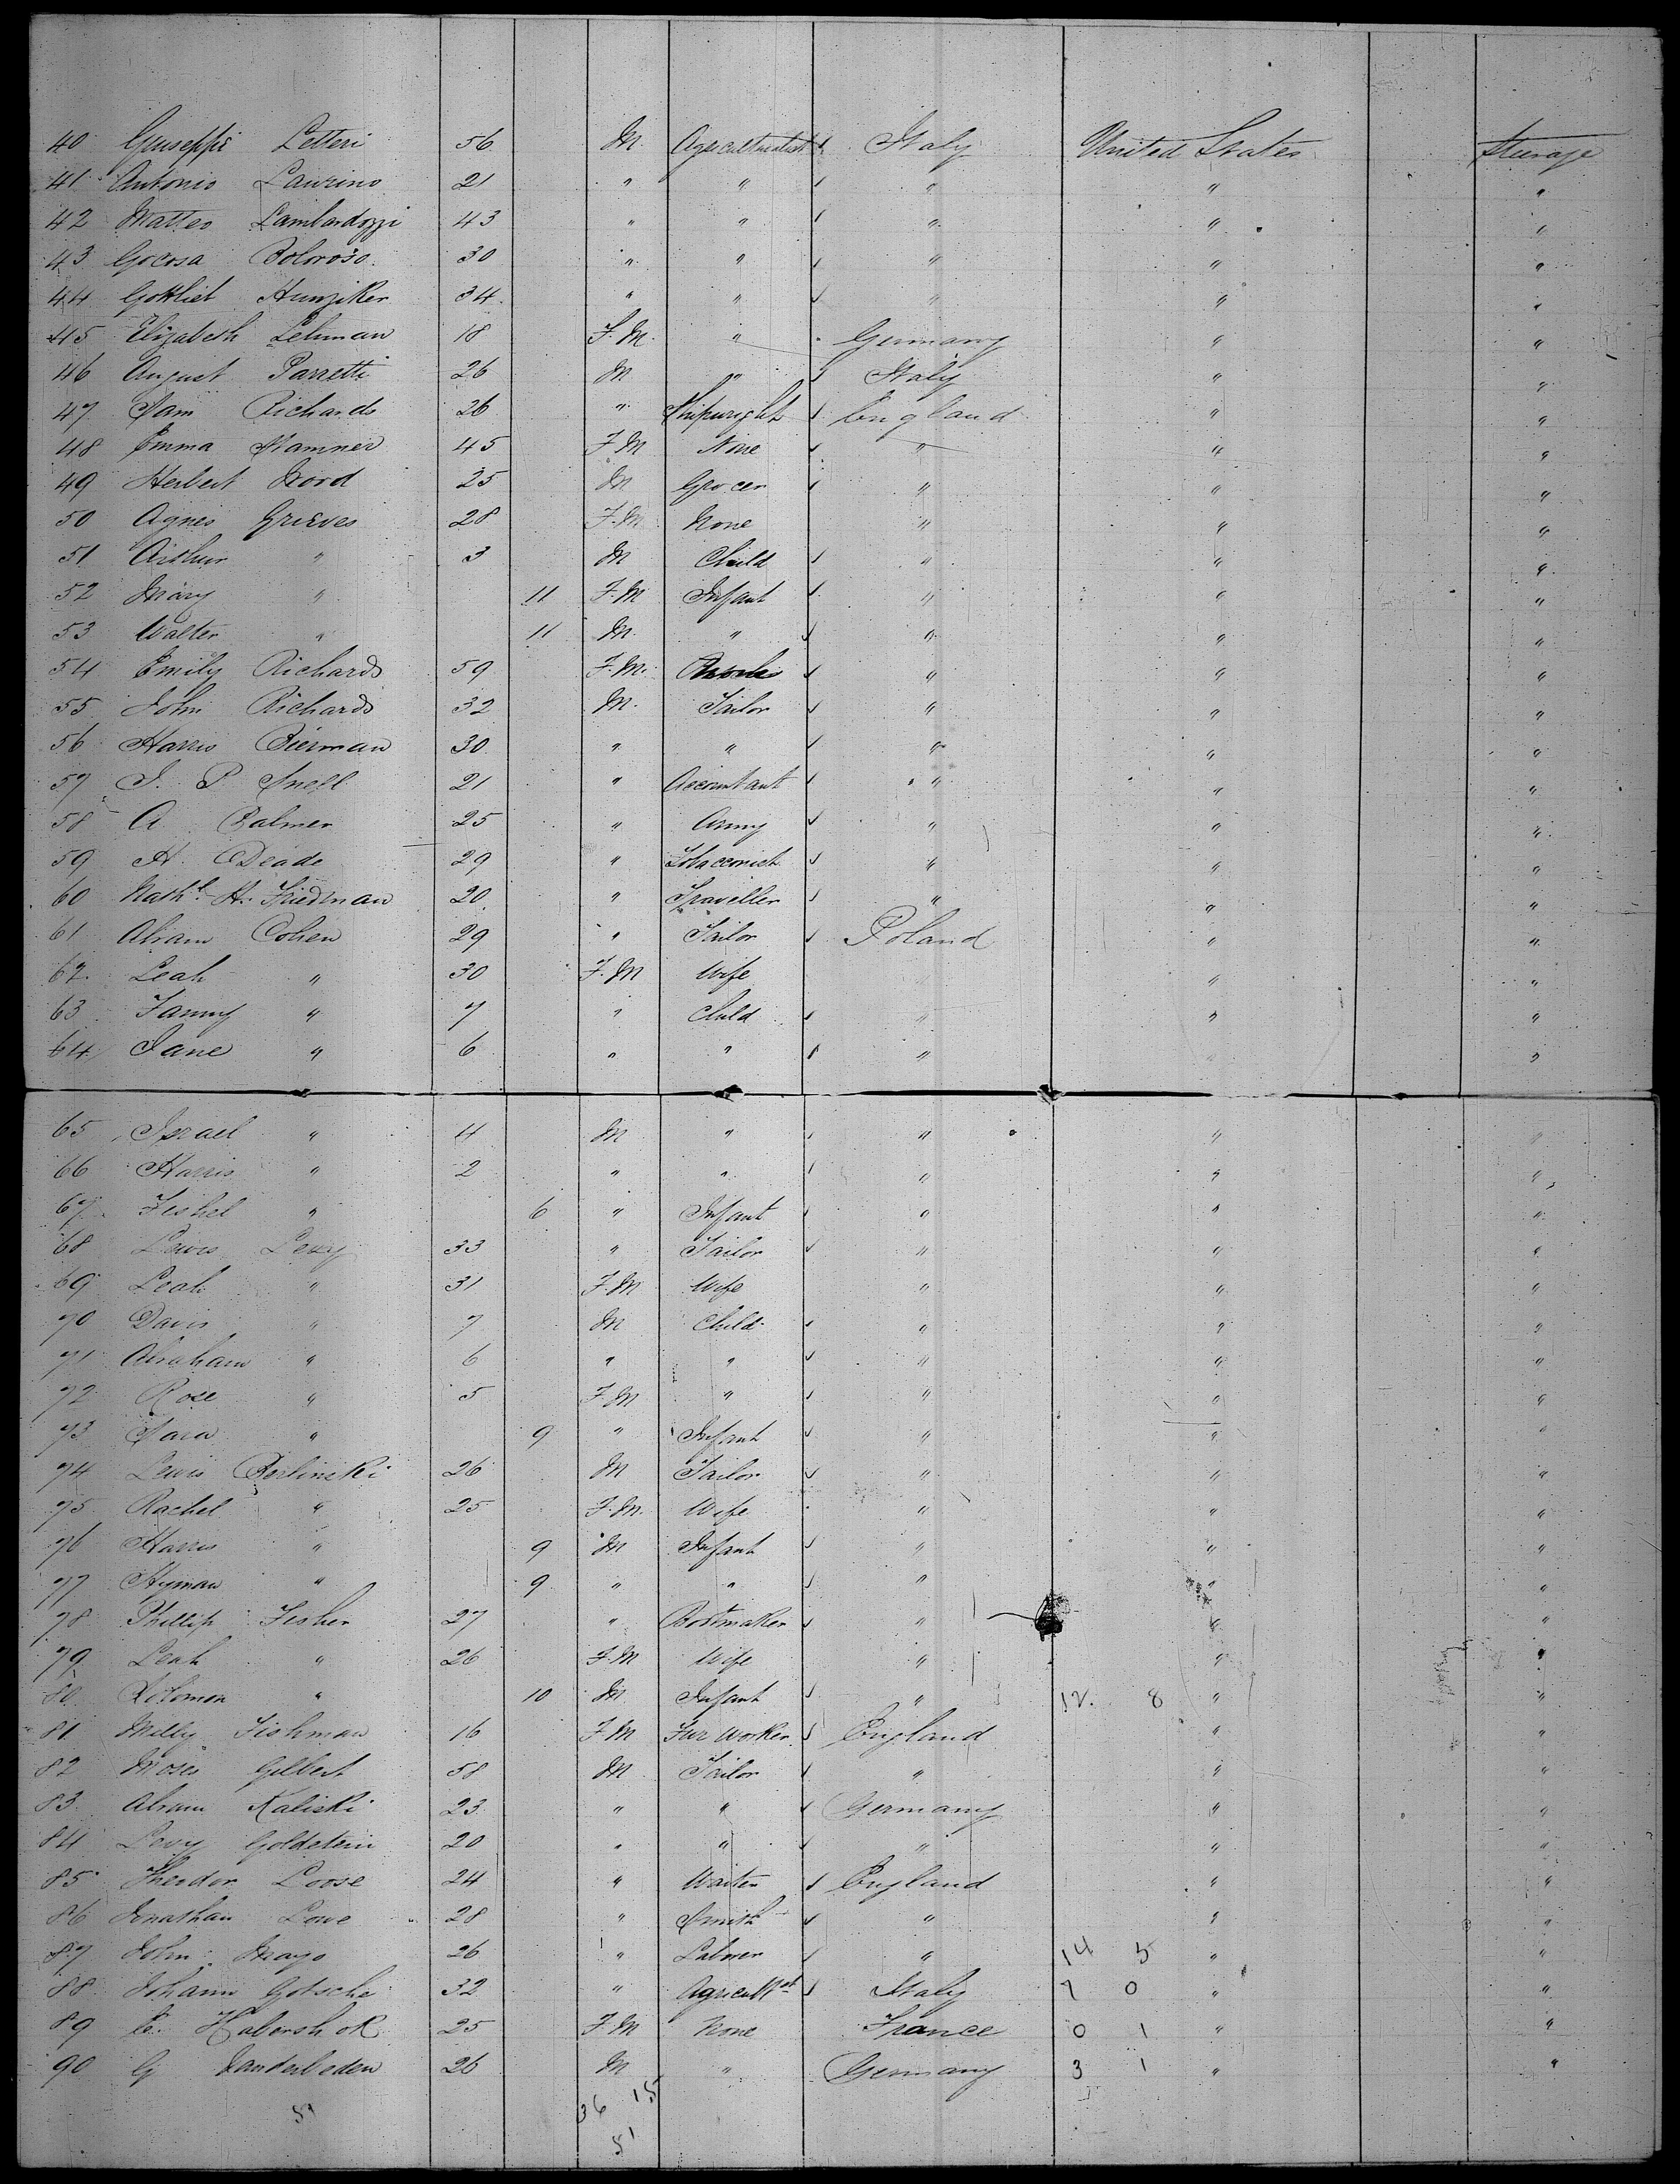 40 Giuseppi Letteri 56 M. Agriculturalist Italy United States Steerage
41 Antonio Laurino 21 " " " " "
42 Matteo Lambardozzi 43 " " " " "
43 30 " " " " "
44 Gottliet Hunziker 34. " " " " "
45 Elizabeth Lehman 18 F.M. " Germany " "
46 August Parretti 26 M " Italy " "
47 Sam Richards 26 " Shipwright England " "
48 Emma 45 F M None " " "
49 Herbert 25 M Grocer " " "
50 Agnes Grieves 28 F.M. None " " "
51 Arthur " 3 M Child " " "
52 Mary " 11 F.M Infant " " "
53 Walter " 11 M. " " " "
54 Emily Richards 59 F.M. " " "
55 John Richards 32 M. Tailor " " "
56 Harris Bierman 30 " " " " "
57 J. P. Snell 21 " Accountant " " "
58 A Palmer 25 " Army " " "
59 H. Deade 29 " Tobacconist " " "
60 Nathl. H. Friedman 20 " Traveller " " "
61 Abram Cohen 29 " Tailor Poland " "
62. Leah " 30 F.M Wife " "
63 Fanny " 7 " Child " " "
64 Jane " 6 " " " " "
65 Israel " 4 M " " " "
66 Harris " 2 " " " " "
67 Fishel " 6 " Infant " " "
68 Lewis Levy 33 " Tailor " " "
69 Leah " 31 F.M Wife " " "
70 Davis " 7 M Child " " "
71 Abraham " 6 " " " " "
72 Rose " 5 F M " " " "
73 Sara " 9 " Infant " " "
74 Lewis Berlinski 26 M Tailor " " "
75 Rachel " 25 F.M. Wife " " "
76 Harris " 9 M Infant " " "
77 Hyman " 9 " " " " "
78 Phillip Fisher 27 " Bootmaker " " "
79 Leah " 26 F.M Wife " " "
80 Solomon " 10 M Infant " 12. 8 " "
81 Milly Fishman 16 F M Fur Worker England " "
82 Moses Gilbert 58 M Tailor " " "
83 Abram Kaliski 23 " " Germany " "
84 Levy Goldstein 20 " " " " "
85 Theodor Loose 24 " Waiter England " "
86 Jonathan Lowe 28 " Smith " " "
87 John Mayo 26 " Laborer " 14 5 " "
88 Johann Gotsche 32 " Agricultst Italy 7 0 " "
89 E. Habershok 25 F M None France 0 1 " "
90 G Vanderbeden 26 M " Germany 3 1 " "
51 36 15
51